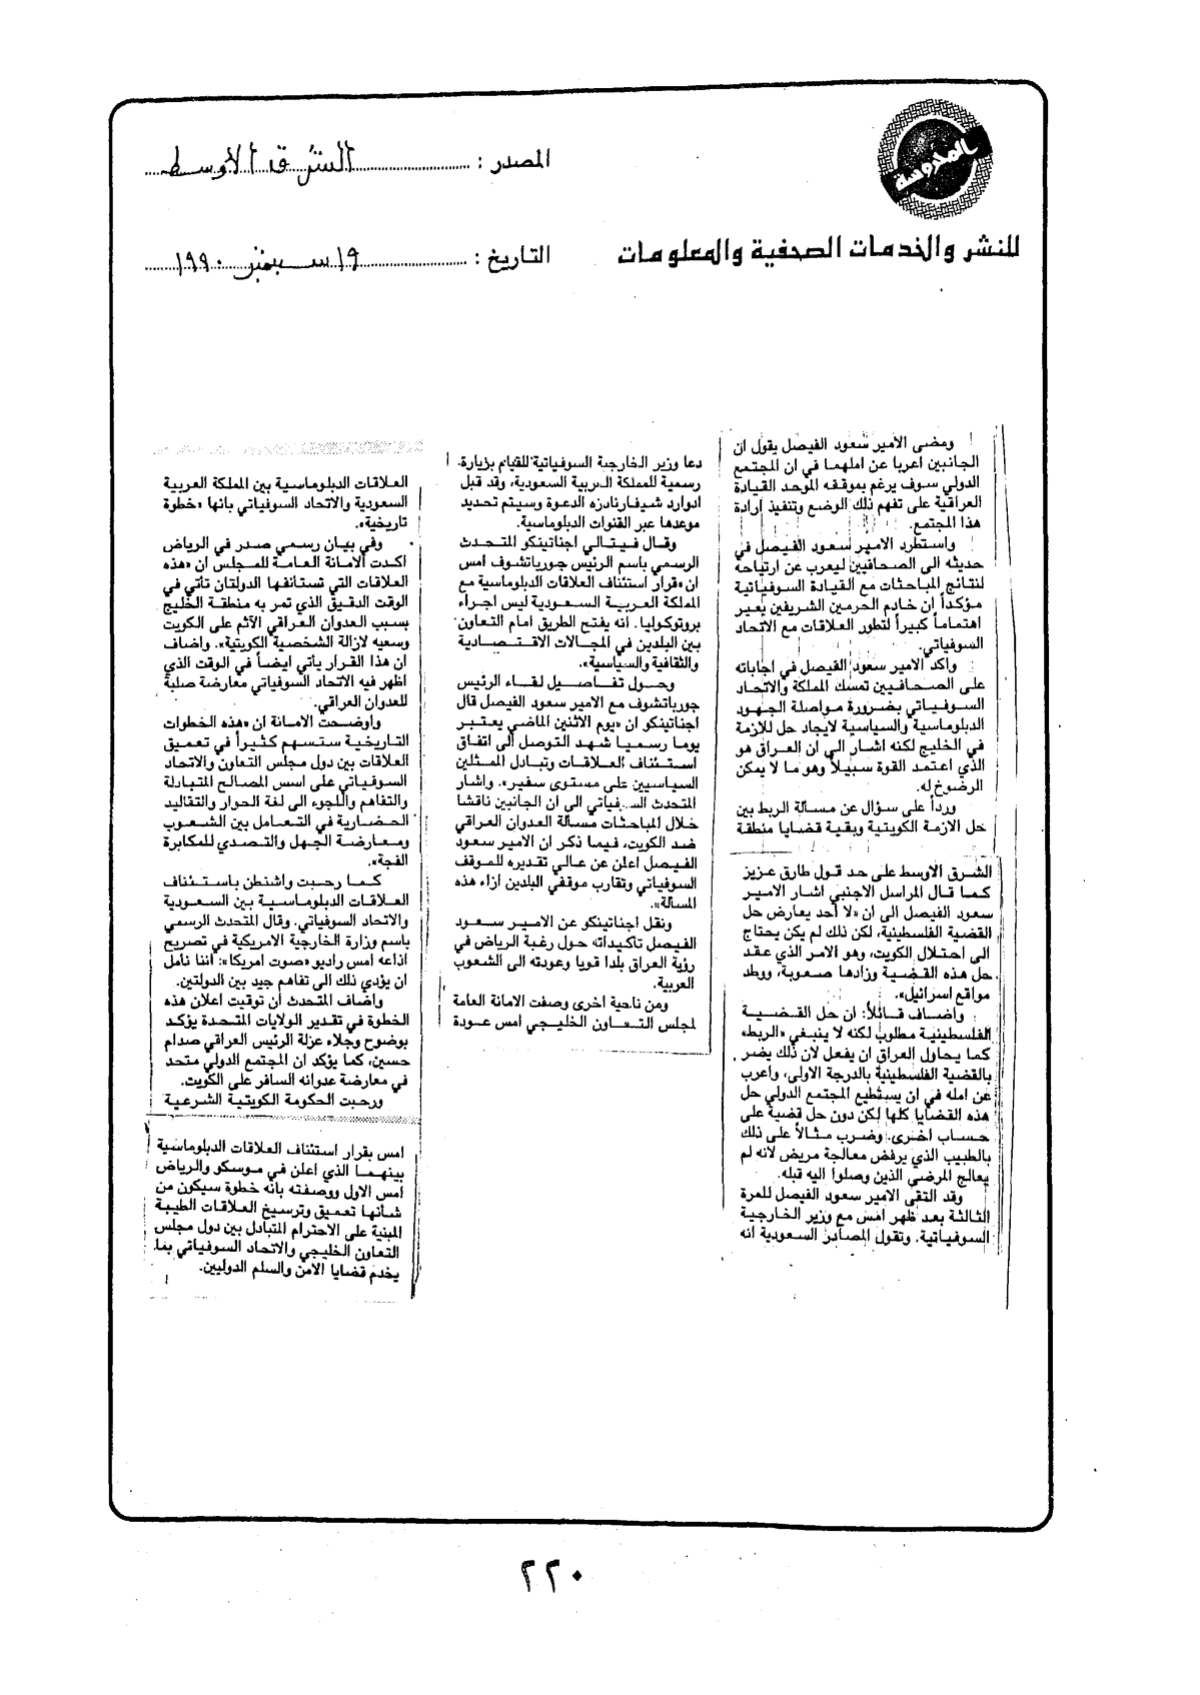 المحروسة
للنشر والخدمات الصحفية والمعلومات
المصدر : الشرق الأوسط
التاريخ : ١٩ سبتمبر ١٩٩٠
ومضى الامير سعود الفيصل يقول ان
الجانبين اعربا عن املهما في ان المجتمع
الدولي سوف يرغم بموقفه الموحد القيادة
العراقية على تفهم ذلك الوضع وتنفيذ ارادة
هذا المجتمع.
واستطرد الامير سعود الفيصل في
حديثه الى الصحافيين ليعرب عن ارتياحه
لنتائج المباحثات مع القيادة السوفياتية
مؤكداً ان خادم الحرمين الشريفين يعير
اهتماماً كبيراً لتطور العلاقات مع الاتحاد
السوفياتي.
واكد الامير سعود الفيصل في اجاباته
على الصحافيين تمسك المملكة والاتحاد
السوفياتي بضرورة مواصلة الجهود
الدبلوماسية والسياسية لايجاد حل للازمة
في الخليج لكنه اشار الى ان العراق هو
الذي اعتمد القوة سبيلاً وهو ما لا يمكن
الرضوخ له.
ورداً على سؤال عن مسالة الربط بين
حل الازمة الكويتية وبقية قضايا منطقة
الشرق الاوسط على حد قول طارق عزيز
كما قال المراسل الاجنبي اشار الامير
سعود الفيصل الى ان «لا أحد يعارض حل
القضية الفلسطينية، لكن ذلك لم يكن يحتاج
الى احتلال الكويت، وهو الامر الذي عقد
حل هذه القضية وزادها صعوبة، ووطد
مواقع اسرائيل».
واضاف قائلاً: ان حل القضية
الفلسطينية مطلوب لكنه لا ينبغي «الربط»
كما يحاول العراق ان يفعل لان ذلك يضر
بالقضية الفلسطينية بالدرجة الاولى، واعرب
عن امله في ان يستطيع المجتمع الدولي حل
هذه القضايا كلها لكن دون حل قضية على
حساب اخرى. وضرب مثالاً على ذلك
بالطبيب الذي يرفض معالجة مريض لانه لم
يعالج المرضى الذين وصلوا اليه قبله.
وقد التقى الامير سعود الفيصل للمرة
الثالثة بعد ظهر امس مع وزير الخارجية
السوفياتية. وتقول المصادر السعودية انه
دعا وزير الخارجية السوفياتية للقيام بزيارة
رسمية للمملكة العربية السعودية، وقد قبل
ادوارد شيفارنادزه الدعوة وسيتم تحديد
موعدها عبر القنوات الدبلوماسية.
وقال فيتالي اجناتينكو المتحدث
الرسمي باسم الرئيس جورباتشوف امس
ان «قرار استئناف العلاقات الدبلوماسية مع
المملكة العربية السعودية ليس اجراء
بروتوكوليا. انه يفتح الطريق امام التعاون
بين البلدين في المجالات الاقتصادية
والثقافية والسياسية».
وحول تفاصيل لقاء الرئيس
جورباتشوف مع الامير سعود الفيصل قال
اجناتينكو ان «يوم الاثنين الماضي يعتبر
يوما رسميا شهد التوصل الى اتفاق
استئناف العلاقات وتبادل الممثلين
السياسيين على مستوى سفير». واشار
المتحدث السوفياتي الى ان الجانبين ناقشا
خلال المباحثات مسألة العدوان العراقي
ضد الكويت، فيما ذكر ان الامير سعود
الفيصل اعلن عن عالي تقديره للموقف
السوفياتي وتقارب موقفي البلدين ازاء هذه
المسالة».
ونقل اجناتينكو عن الامير سعود
الفيصل تاكيداته حول رغبة الرياض في
رؤية العراق بلدا قويا وعودته الى الشعوب
العربية.
ومن ناحية اخرى وصفت الامانة العامة
لمجلس التعاون الخليجي امس عودة
العلاقات الدبلوماسية بين المملكة العربية
السعودية والاتحاد السوفياتي بانها «خطوة
تاريخية».
وفي بيان رسمي صدر في الرياض
اكدت الامانة العامة للمجلس ان «هذه
العلاقات التي تستانفها الدولتان تأتي في
الوقت الدقيق الذي تمر به منطقة الخليج
بسبب العدوان العراقي الآثم على الكويت
وسعيه لازالة الشخصية الكويتية». واضاف
ان هذا القرار يأتي ايضاً في الوقت الذي
اظهر فيه الاتحاد السوفياتي معارضة صلبة
للعدوان العراقي.
واوضحت الامانة ان «هذه الخطوات
التاريخية ستسهم كثيراً في تعميق
العلاقات بين دول مجلس التعاون والاتحاد
السوفياتي على اسس المصالح المتبادلة
والتفاهم واللجوء الى لغة الحوار والتقاليد
الحضارية في التعامل بين الشعوب
ومعارضة الجهل والتصدي للمكابرة
الفجة».
كما رحبت واشنطن باستئناف
العلاقات الدبلوماسية بين السعودية
والاتحاد السوفياتي. وقال المتحدث الرسمي
باسم وزارة الخارجية الامريكية في تصريح
أذاعه امس راديو «صوت امريكا»: أننا نأمل
ان يؤدي ذلك الى تفاهم جيد بين الدولتين.
واضاف المتحدث أن توقيت اعلان هذه
الخطوة في تقدير الولايات المتحدة يؤكد
بوضوح وجلاء عزلة الرئيس العراقي صدام
حسين، كما يؤكد ان المجتمع الدولي متحد
في معارضة عدوانه السافر على الكويت.
ورحبت الحكومة الكويتية الشرعية
امس بقرار استئناف العلاقات الدبلوماسية
بينهما الذي اعلن في موسكو والرياض
امس الاول ووصفته بانه خطوة سيكون من
شأنها تعميق وترسيخ العلاقات الطيبة
المبنية على الاحترام المتبادل بين دول مجلس
التعاون الخليجي والاتحاد السوفياتي بما
يخدم قضايا الامن والسلم الدوليين.
٢٢٠